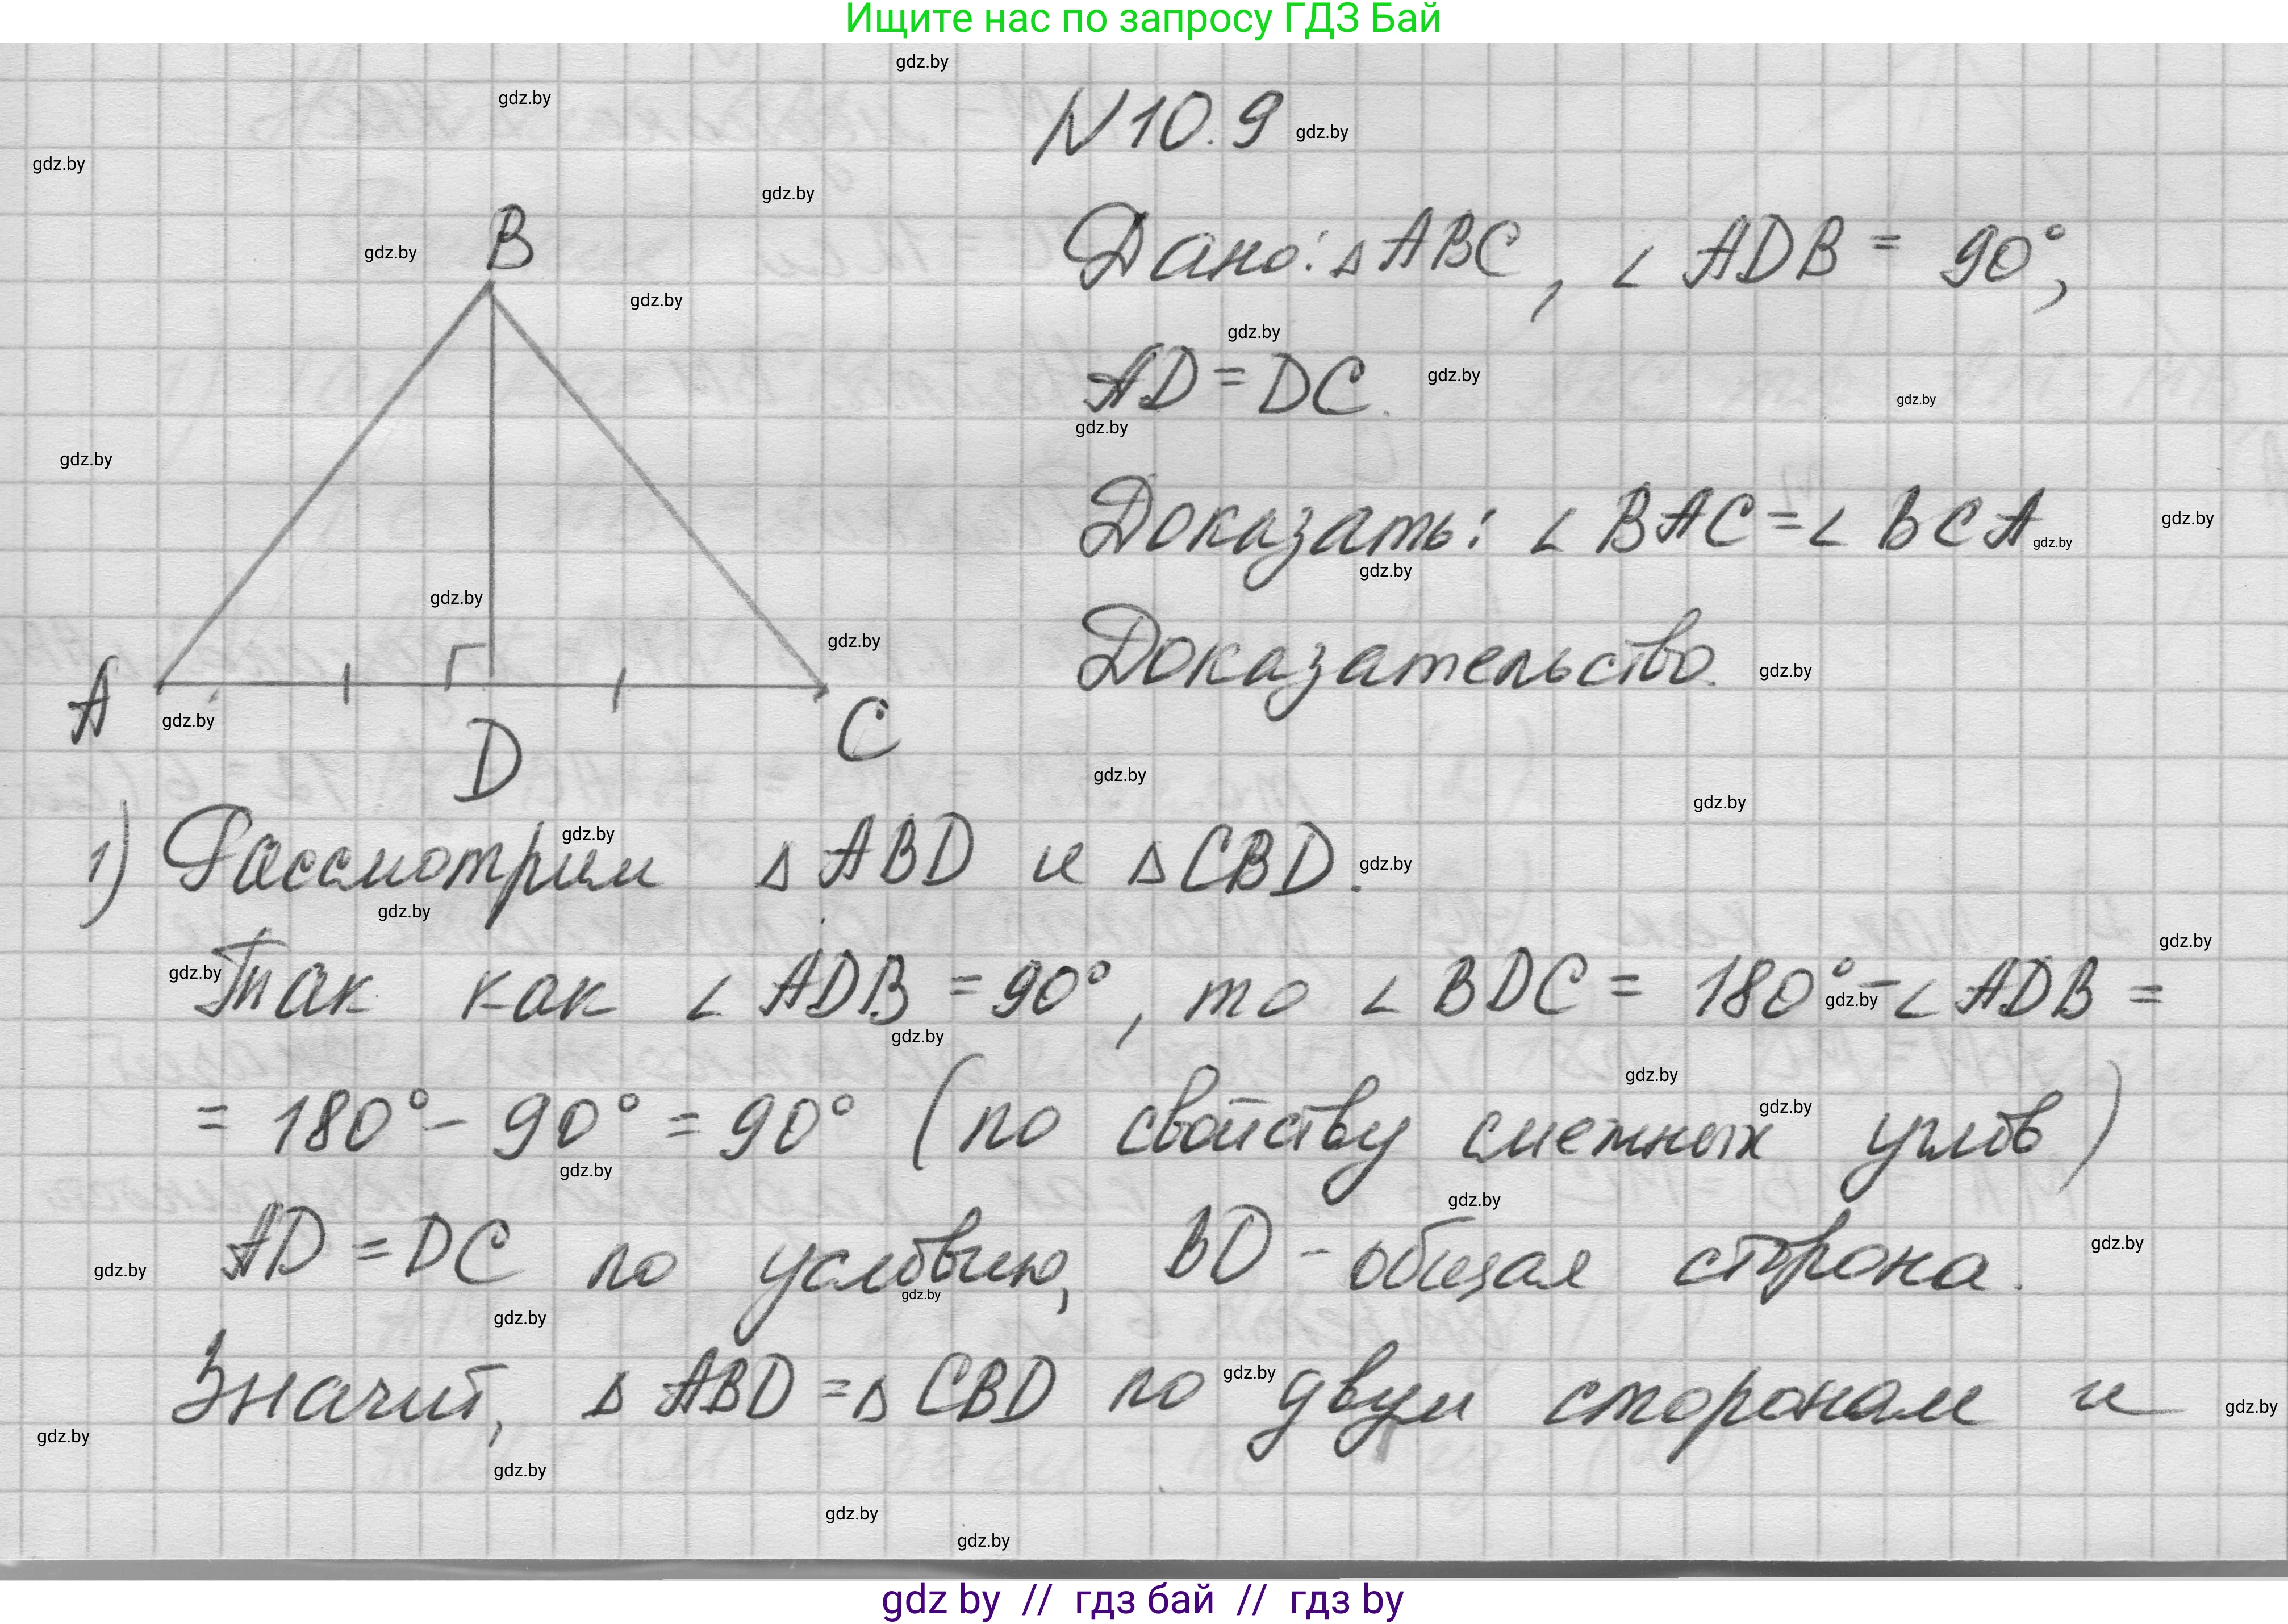 Ищите нас по запросу ГДЗ Бай
gdz.by
gdz.by
N 10.9 gdz.by
gdz.by
gdz.by
B
gdz.by
Дано: △ABC, ∠ADB = 90°,
gdz.by
gdz.by
AD = DC. gdz.by
gdz.by
gdz.by
gdz.by
Доказать: ∠BAC = ∠BCA gdz.by
gdz.by
gdz.by
gdz.by
gdz.by
Доказательство. gdz.by
A
gdz.by
D
C
gdz.by
gdz.by
gdz.by
1) Рассмотрим △ABD и △CBD. gdz.by
gdz.by
gdz.by
gdz.by
Так как ∠ADB = 90°, то ∠BDC = 180° - ∠ADB =
gdz.by
gdz.by
gdz.by
gdz.by
= 180° - 90° = 90° (по свойству смежных углов)
gdz.by
gdz.by
gdz.by
gdz.by
AD = DC по условию, BD - общая сторона.
gdz.by
gdz.by
gdz.by
Значит, △ABD = △CBD по двум сторонам и
gdz.by
gdz.by
gdz.by
gdz.by
gdz.by
gdz by // гдз бай // гдз by